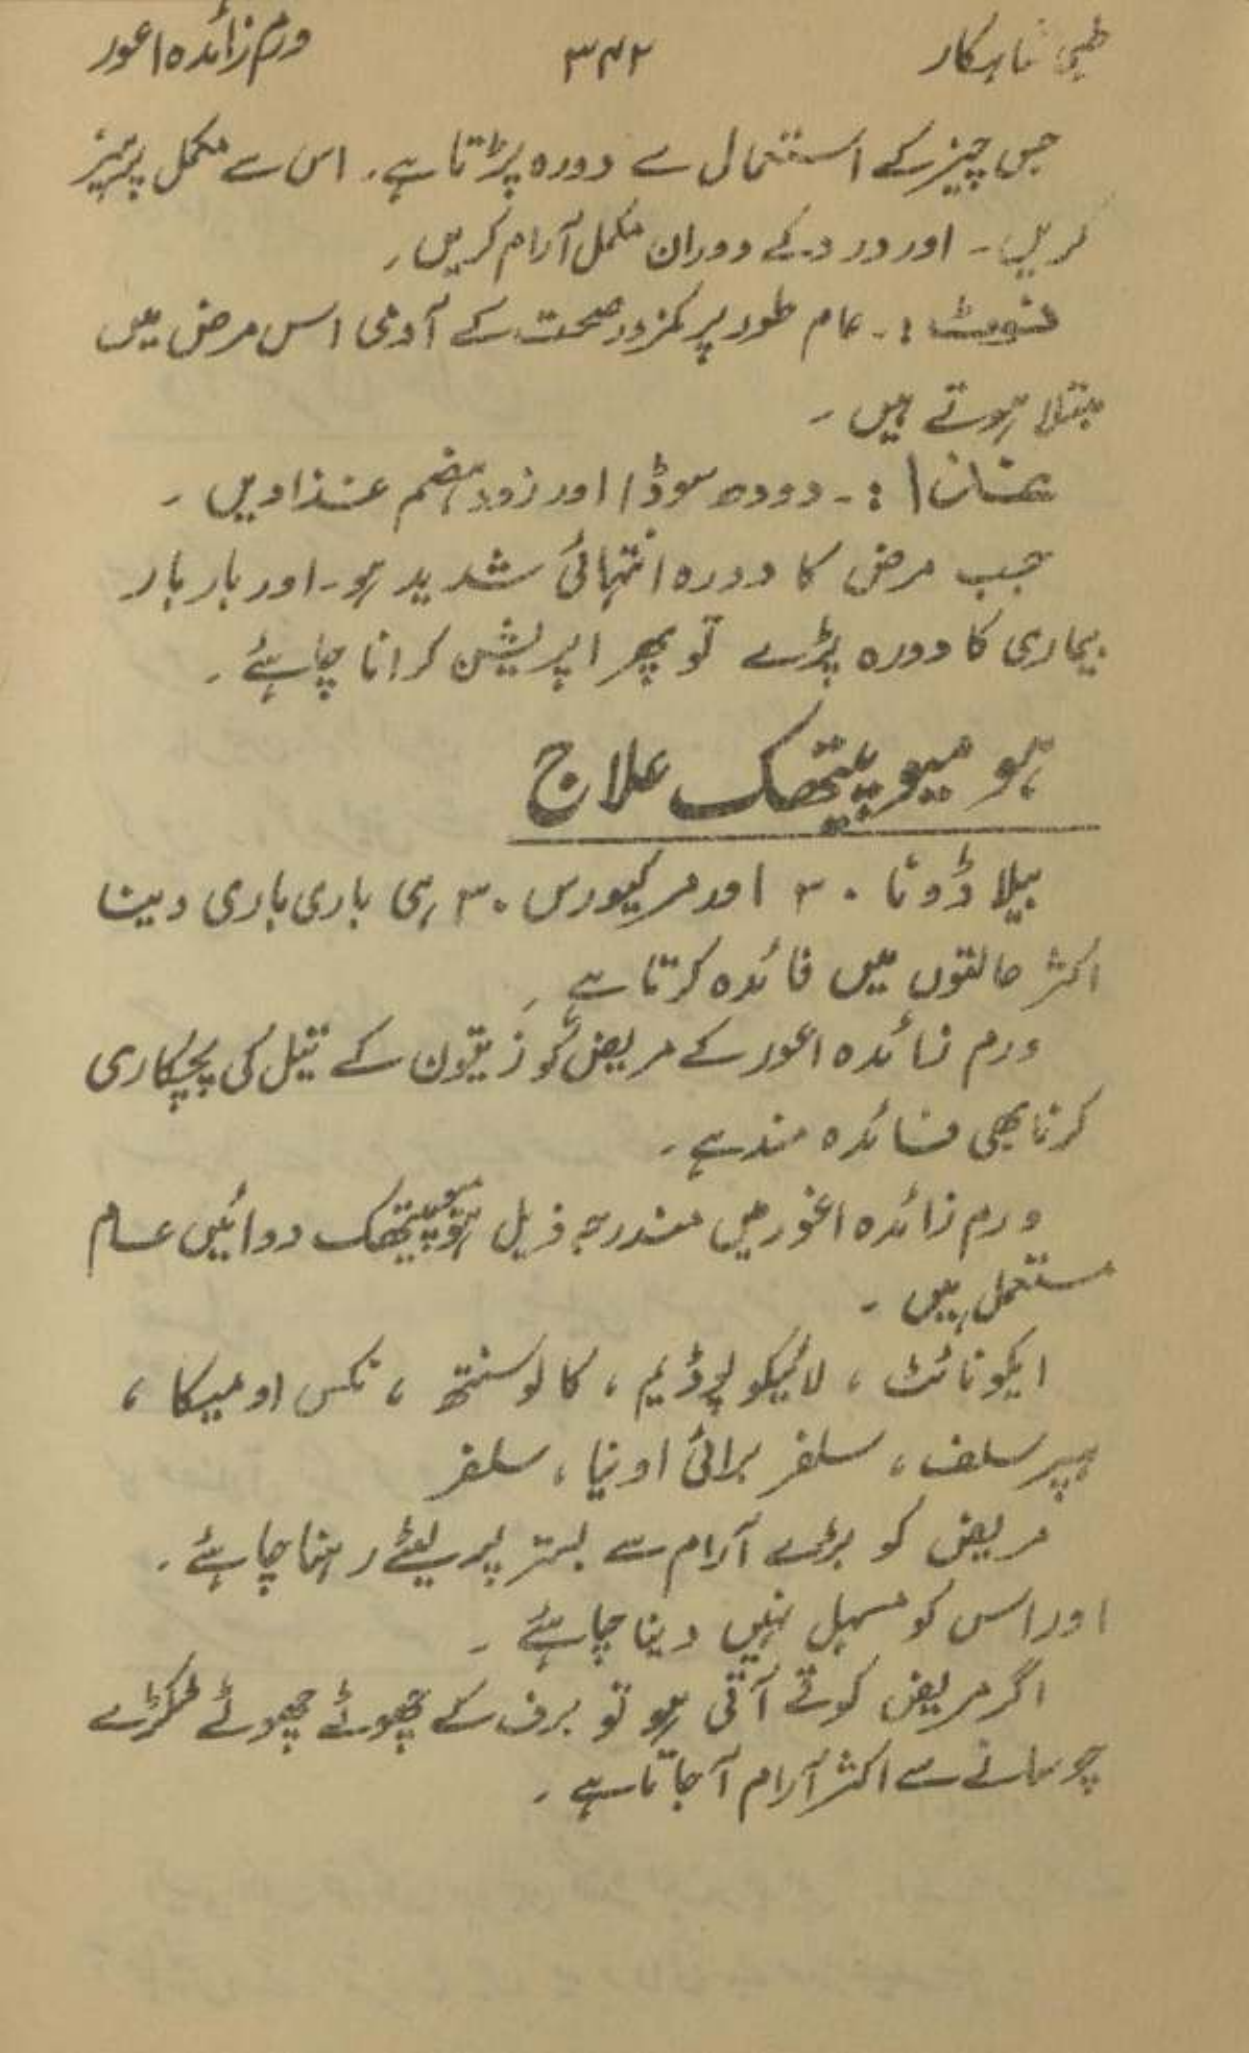 طبی شاہکار ۳۴۲ ورم زائدہ اعور
جس چیز کے استعمال سے دورہ پڑتا ہے۔ اس سے مکمل پرہیز
کریں۔ اور درد کے دوران مکمل آرام کریں۔
نوٹ :۔ عام طور پر کمزور صحت کے آدمی اس مرض میں
مبتلا ہوتے ہیں۔
غذا :۔ دودھ سوڈا اور زود ہضم غذا دیں۔
جب مرض کا دورہ انتہائی شدید ہو۔ اور بار بار
بیماری کا دورہ پڑے تو پھر اپریشن کرانا چاہئے۔
ہومیوپیتھک علاج
بیلا ڈونا ۳۰ اور مرکیورس ۳۰ ہی باری باری دینا
اکثر حالتوں میں فائدہ کرتا ہے۔
ورم زائدہ اعور کے مریض کو زیتون کے تیل کی پچکاری
کرنا بھی فائدہ مند ہے۔
ورم زائدہ اغور میں مندرجہ ذیل ہومیوپیتھک دوائیں عام
مستعمل ہیں۔
ایکونائٹ ، لائیکو پوڈیم ، کالوسنتھ ، نکس اومیکا ،
ہیپر سلف ، سلفر برائی اونیا ، سلفر
مریض کو بڑے آرام سے بستر پر لیٹے رہنا چاہئے۔
اور اس کو مسہل نہیں دینا چاہئے۔
اگر مریض کو قے آتی ہو تو برف کے چھوٹے چھوٹے ٹکڑے
چوسانے سے اکثر آرام آ جاتا ہے۔